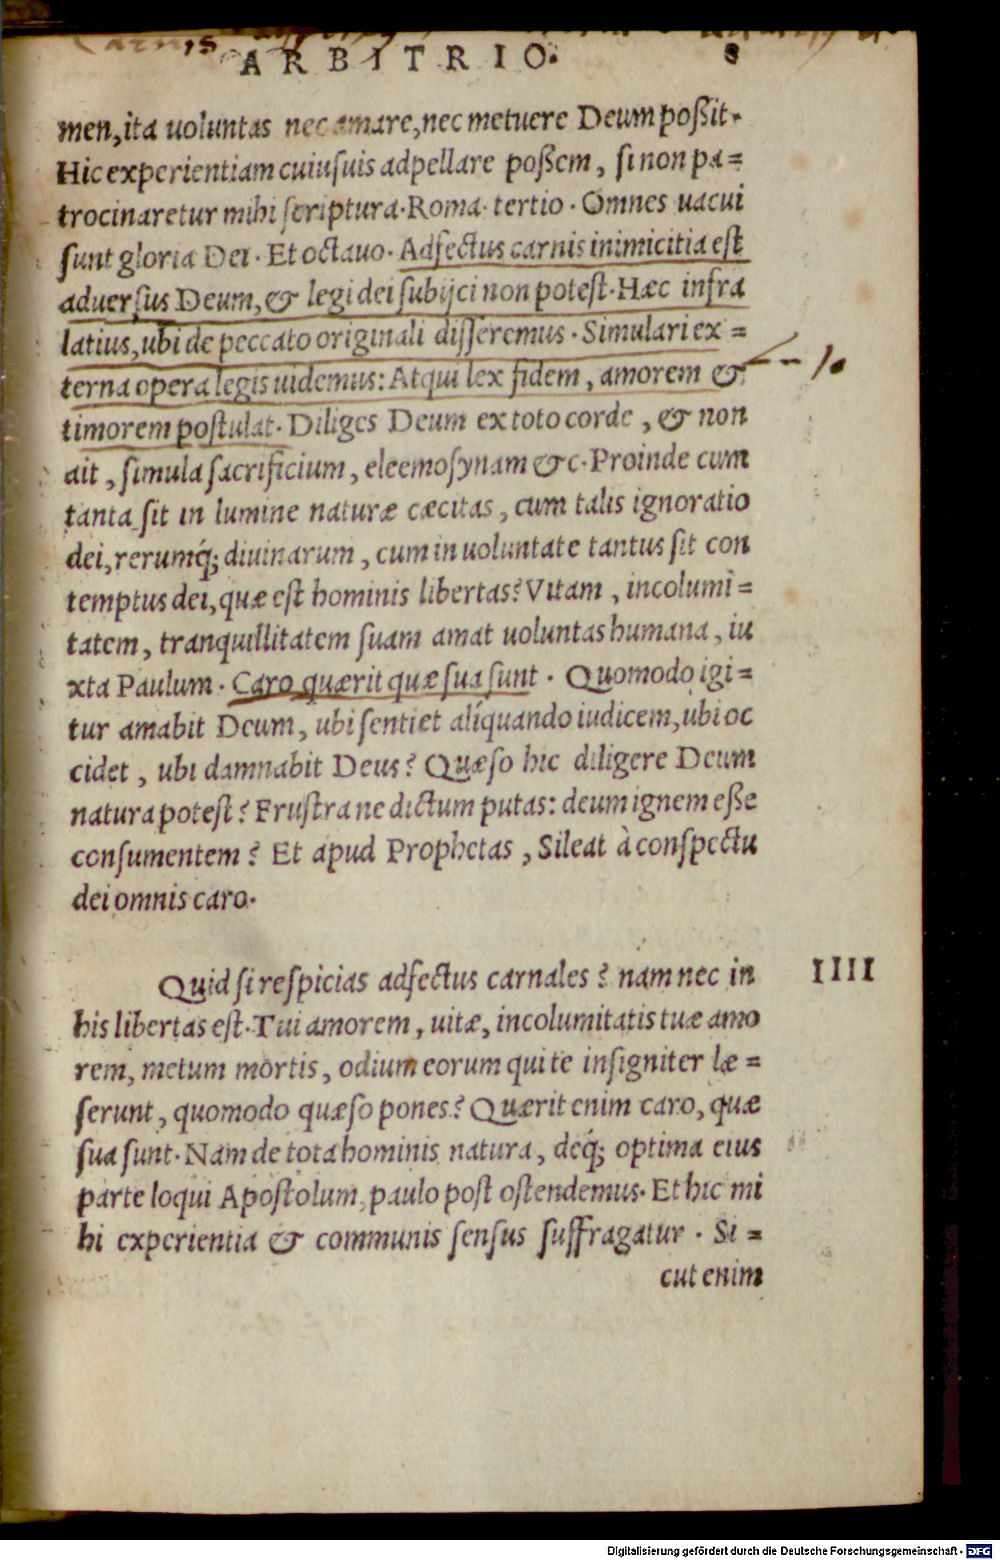 Carnis
ARBITRIO. 8
men, ita uoluntas nec amare, nec metuere Deum poßit.
Hic experientiam cuiuſuis adpellare poßem, ſi non pa=
trocinaretur mihi ſcriptura. Roma. tertio. Omnes uacui
ſunt gloria Dei. Et octauo. Adfectus carnis inimicitia eſt
aduerſus Deum, & legi dei ſubijci non poteſt. Hæc infra
latius, ubi de peccato originali diſſeremus. Simulari ex=
terna opera legis uidemus: Atqui lex fidem, amorem &
timorem poſtulat. Diliges Deum ex toto corde, & non
ait, ſimula ſacrificium, eleemoſynam &c. Proinde cum
tanta ſit in lumine naturæ cæcitas, cum talis ignoratio
dei, rerumq́; diuinarum, cum in uoluntate tantus ſit con
temptus dei, quæ eſt hominis libertas? Vitam, incolumi=
tatem, tranquillitatem ſuam amat uoluntas humana, iu
xta Paulum. Caro quærit quæ ſua ſunt. Quomodo igi=
tur amabit Deum, ubi ſentiet alíquando iudicem, ubi oc
cidet, ubi damnabit Deus? Quæſo hic diligere Deum
natura poteſt? Fruſtra ne dictum putas: deum ignem eße
conſumentem? Et apud Prophetas, Sileat à conſpectu
dei omnis caro.
Quid ſi reſpicias adfectus carnales? nam nec in
IIII
his libertas eſt. Tui amorem, uitæ, incolumitatis tuæ amo
rem, metum mortis, odium eorum qui te inſigniter læ=
ſerunt, quomodo quæſo pones? Quærit enim caro, quæ
ſua ſunt. Nam de tota hominis natura, deq́; optima eius
parte loqui Apoſtolum, paulo poſt oſtendemus. Et hic mi
hi experientia & communis ſenſus ſuffragatur. Si=
cut enim
Digitalisierung gefördert durch die Deutsche Forschungsgemeinschaft - DFG